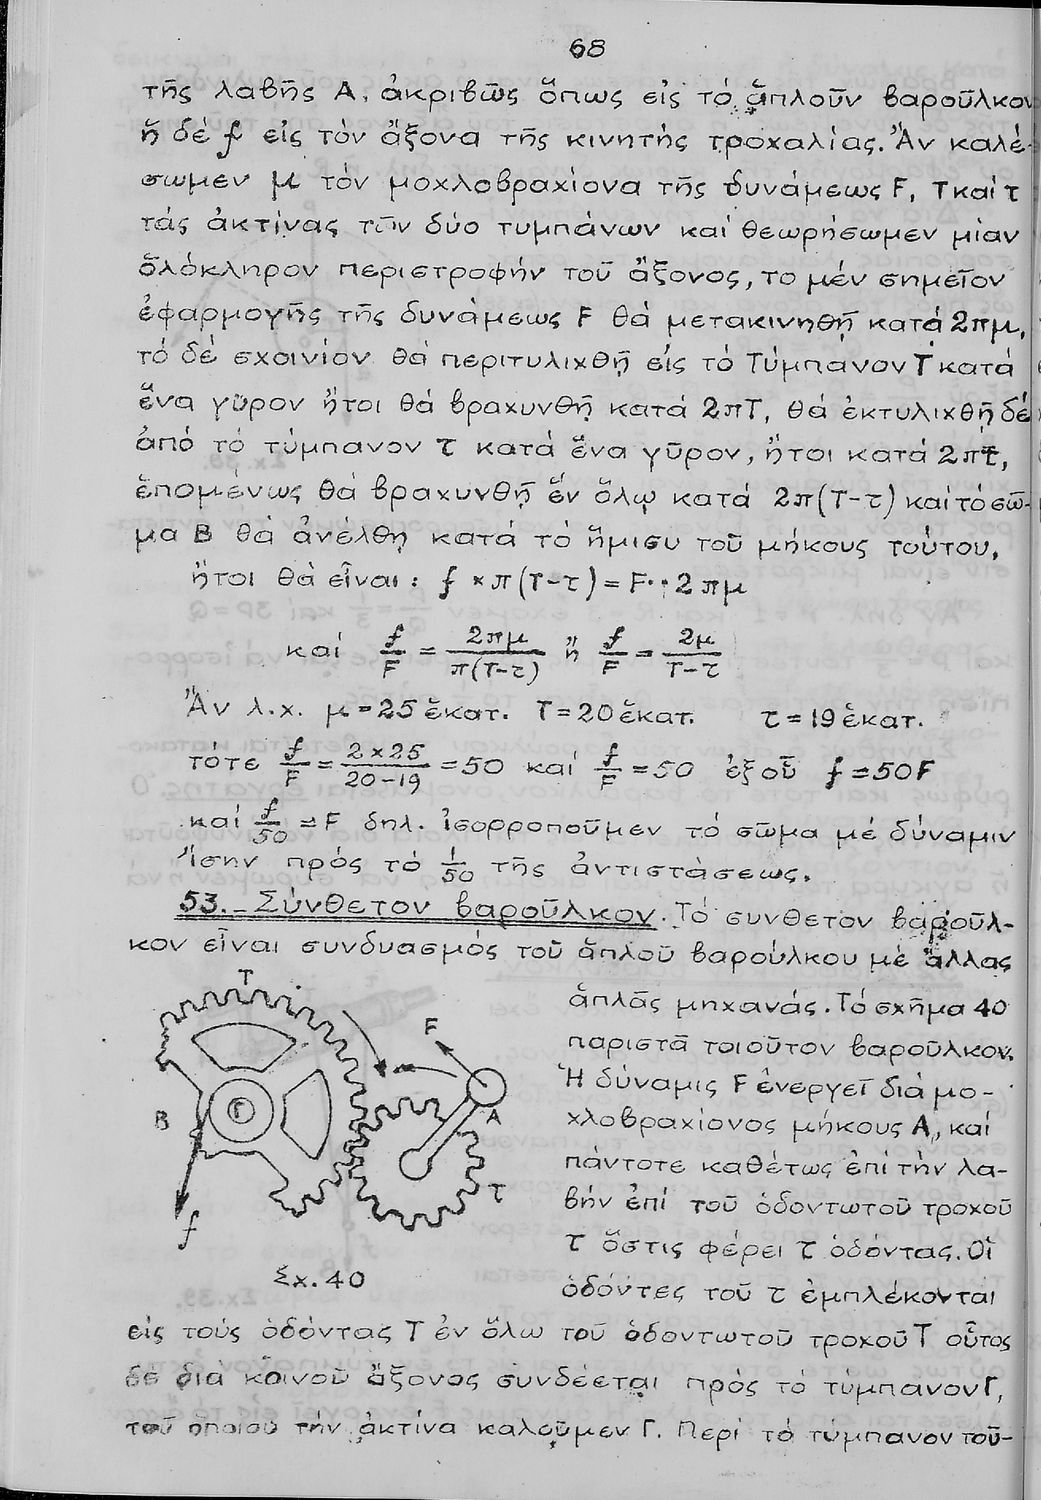 68
τῆς λαβῆς Α, ἀκριβῶς ὅπως εἰς τό ἁπλοῦν βαροῦλκον
ἡ δέ f εἰς τόν ἄξονα τῆς κινητῆς τροχαλίας. Ἄν καλέ-
σωμεν μ τόν μοχλοβραχίονα τῆς δυνάμεως F, T καί τ
τάς ἀκτίνας τῶν δύο τυμπάνων καί θεωρήσωμεν μίαν
ὁλόκληρον περιστροφήν τοῦ ἄξονος, το μέν σημεῖον
ἐφαρμογῆς τῆς δυνάμεως F θά μετακινηθῇ κατά 2πμ,
τό δέ σχοινίον θά περιτυλιχθῇ εἰς τό Τύμπανον Τ κατά
ἕνα γῦρον ἤτοι θά βραχυνθῇ κατά 2πΤ, θά ἐκτυλιχθῇ δέ
ἀπό τό τύμπανον τ κατά ἕνα γῦρον, ἤτοι κατά 2πτ,
ἑπομένως θά βραχυνθῇ ἐν ὅλῳ κατά 2π(Τ-τ) καί τό σῶ-
μα Β θά ἀνέλθῃ κατά τό ἥμισυ τοῦ μήκους τούτου,
ἤτοι θά εἶναι: f × π(Τ-τ) = F · 2πμ
καί f/F = 2πμ/π(Τ-τ) ἤ f/F = 2μ/Τ-τ
Ἄν λ.χ. μ=25 ἑκατ. Τ=20 ἑκατ. τ=19 ἑκατ.
τότε f/F = 2×25/20-19 = 50 καί f/F = 50 ἐξ οὗ f = 50F
καί f/50 = F δηλ. ἰσορροποῦμεν τό σῶμα μέ δύναμιν
ἴσην πρός τό 1/50 τῆς ἀντιστάσεως.
53.- Σύνθετον βαροῦλκον. Τό συνθετον βαροῦλ-
κον εἶναι συνδυασμός τοῦ ἁπλοῦ βαρούλκου μέ ἄλλας
ἁπλᾶς μηχανάς. Τό σχῆμα 40
παριστᾶ τοιοῦτον βαροῦλκον.
Ἡ δύναμις F ἐνεργεῖ διά μο-
χλοβραχίονος μήκους Α, καί
πάντοτε καθέτως ἐπί τήν λα-
βήν ἐπί τοῦ ὀδοντωτοῦ τροχοῦ
τ ὅστις φέρει τ ὀδόντας. Οἱ
ὀδόντες τοῦ τ ἐμπλέκονται
T
F
B
Γ
A
τ
f
Σχ. 40
εἰς τούς ὀδόντας Τ ἐν ὅλω τοῦ ὀδοντωτοῦ τροχοῦ Τ οὗτος
δέ διά κοινοῦ ἄξονος συνδέεται πρός τό τύμπανον Γ,
τοῦ ὁποίου τήν ἀκτίνα καλοῦμεν Γ. Περί τό τύμπανον τοῦ-